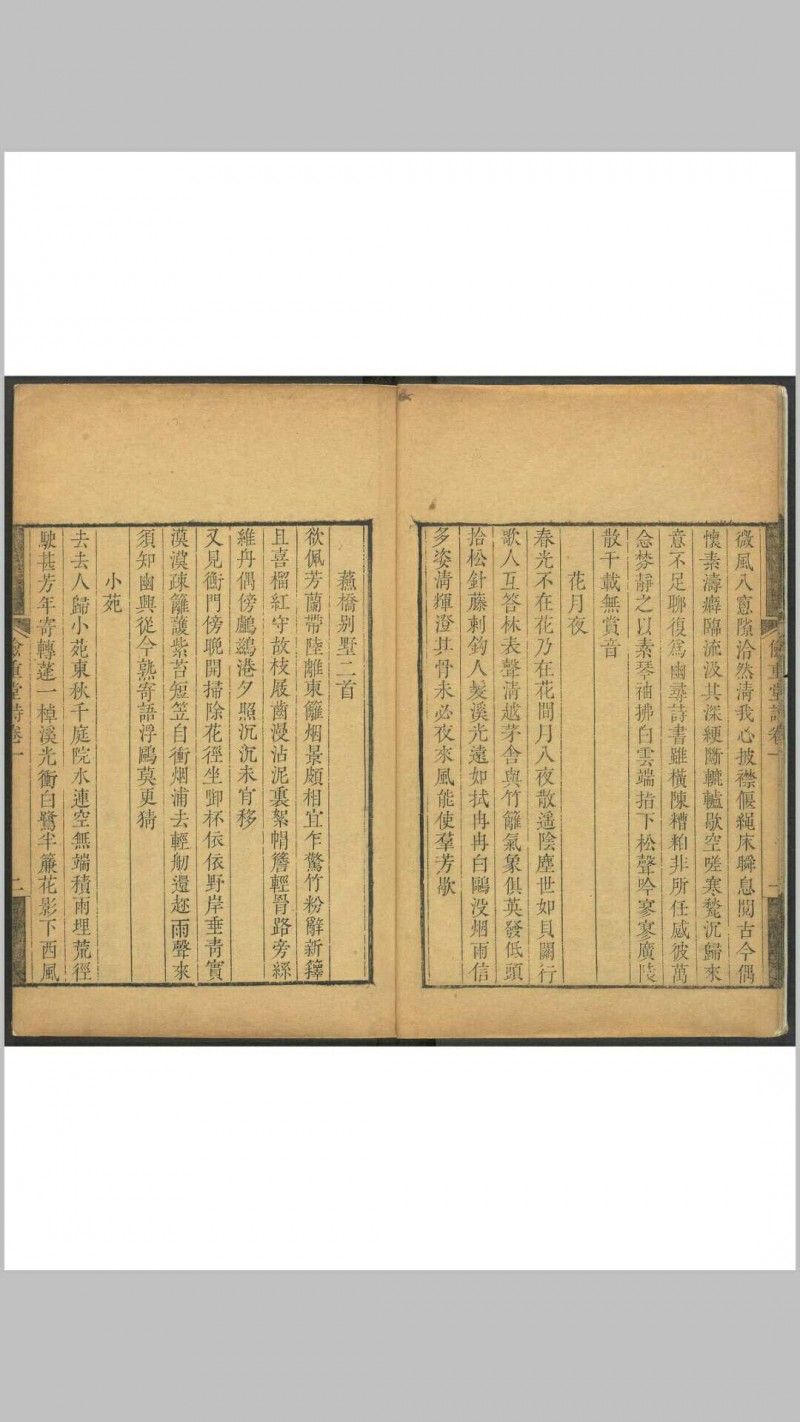 微風入窻隙洽然清我心披襟偃繩床瞬息閱古今偶
懷素濤癖臨流汲其深綆斷轆轤歇空嗟寒甃沉歸來
意不足聊復爲幽尋詩書雖橫陳糟粕非所任感彼萬
念棼靜之以素琴袖拂白雲端指下松聲吟寥寥廣陵
散千載無賞音
花月夜
春光不在花乃在花間月入夜散遥陰塵世如貝闕行
歌人互答林表聲清越茅舍與竹籬氣象俱英發低頭
拾松針藤刺鈎人髮溪光遠如拭冉冉白鷗没烟雨信
多姿清輝澄其骨未必夜來風能使羣芳歇
蕪橋别墅二首
欲佩芳蘭帶陸離東籬烟景頗相宜乍驚竹粉辭新籜
且喜榴紅守故枝屐齒漫沾泥裏絮帽簷輕罥路旁絲
維舟偶傍鸕鷀港夕照沉沉未肯移
又見衡門傍晚開掃除花徑坐啣杯依依野岸垂青實
漠漠疎籬護紫苔短笠自衝烟浦去輕舠還趂雨聲來
須知幽興從今熟寄語浮鷗莫更猜
小苑
去去人歸小苑東秋千庭院水連空無端積雨埋荒徑
駛甚芳年寄轉蓬一棹溪光衝白鷺半簾花影下西風
重堂詩卷一
二